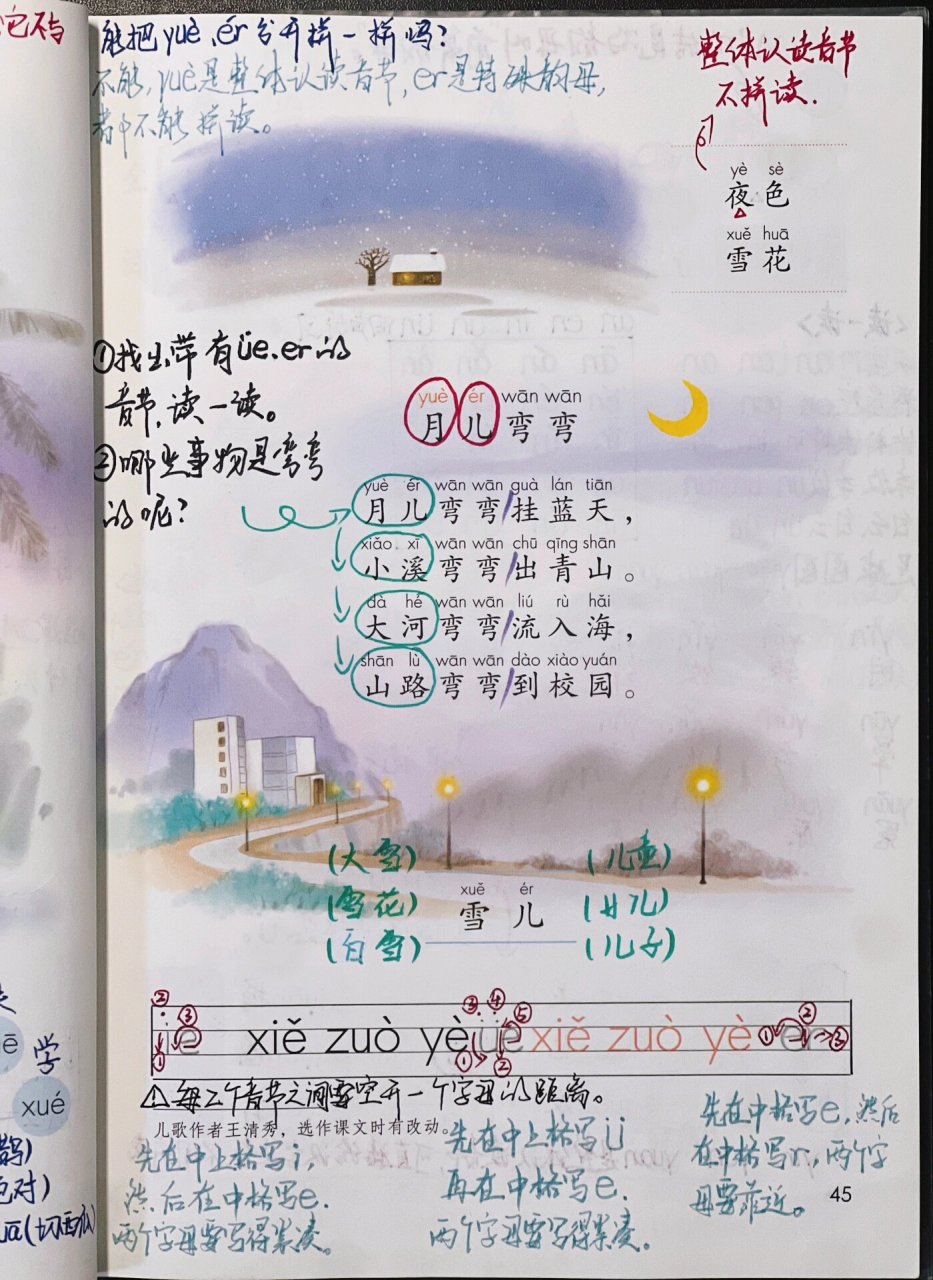 能把yuè、ér分开拼一拼吗?
不能,yuè是整体认读音节,er是特殊韵母,
都不能拼读。
整体认读音节
不拼读.
yè sè
夜色
xuě huā
雪花
①找出带有üe、er的
音节,读一读。
②哪些事物是弯弯
的呢?
yuè ér wān wān
月儿弯弯
yuè ér wān wān guà lán tiān
月儿弯弯/挂蓝天,
xiǎo xī wān wān chū qīng shān
小溪弯弯/出青山。
dà hé wān wān liú rù hǎi
大河弯弯/流入海,
shān lù wān wān dào xiào yuán
山路弯弯/到校园。
(大雪) (儿童)
xuě ér
(雪花) 雪 儿 (女儿)
(白雪) (儿子)
② ③ ③ ④ ⑤ ②
ie xiě zuò yè üe xiě zuò yè ① er ③
① ① ②
每二个音节之间要空开一个字母的距离。
儿歌作者王清秀,选作课文时有改动。
先在中上格写i,
然后在中格写e.
两个字母要写得紧凑。
先在中上格写ü
再在中格写e.
两个字母要写得紧凑。
先在中格写e,然后
在中格写r,两个字
母要靠近。
45
学
xué